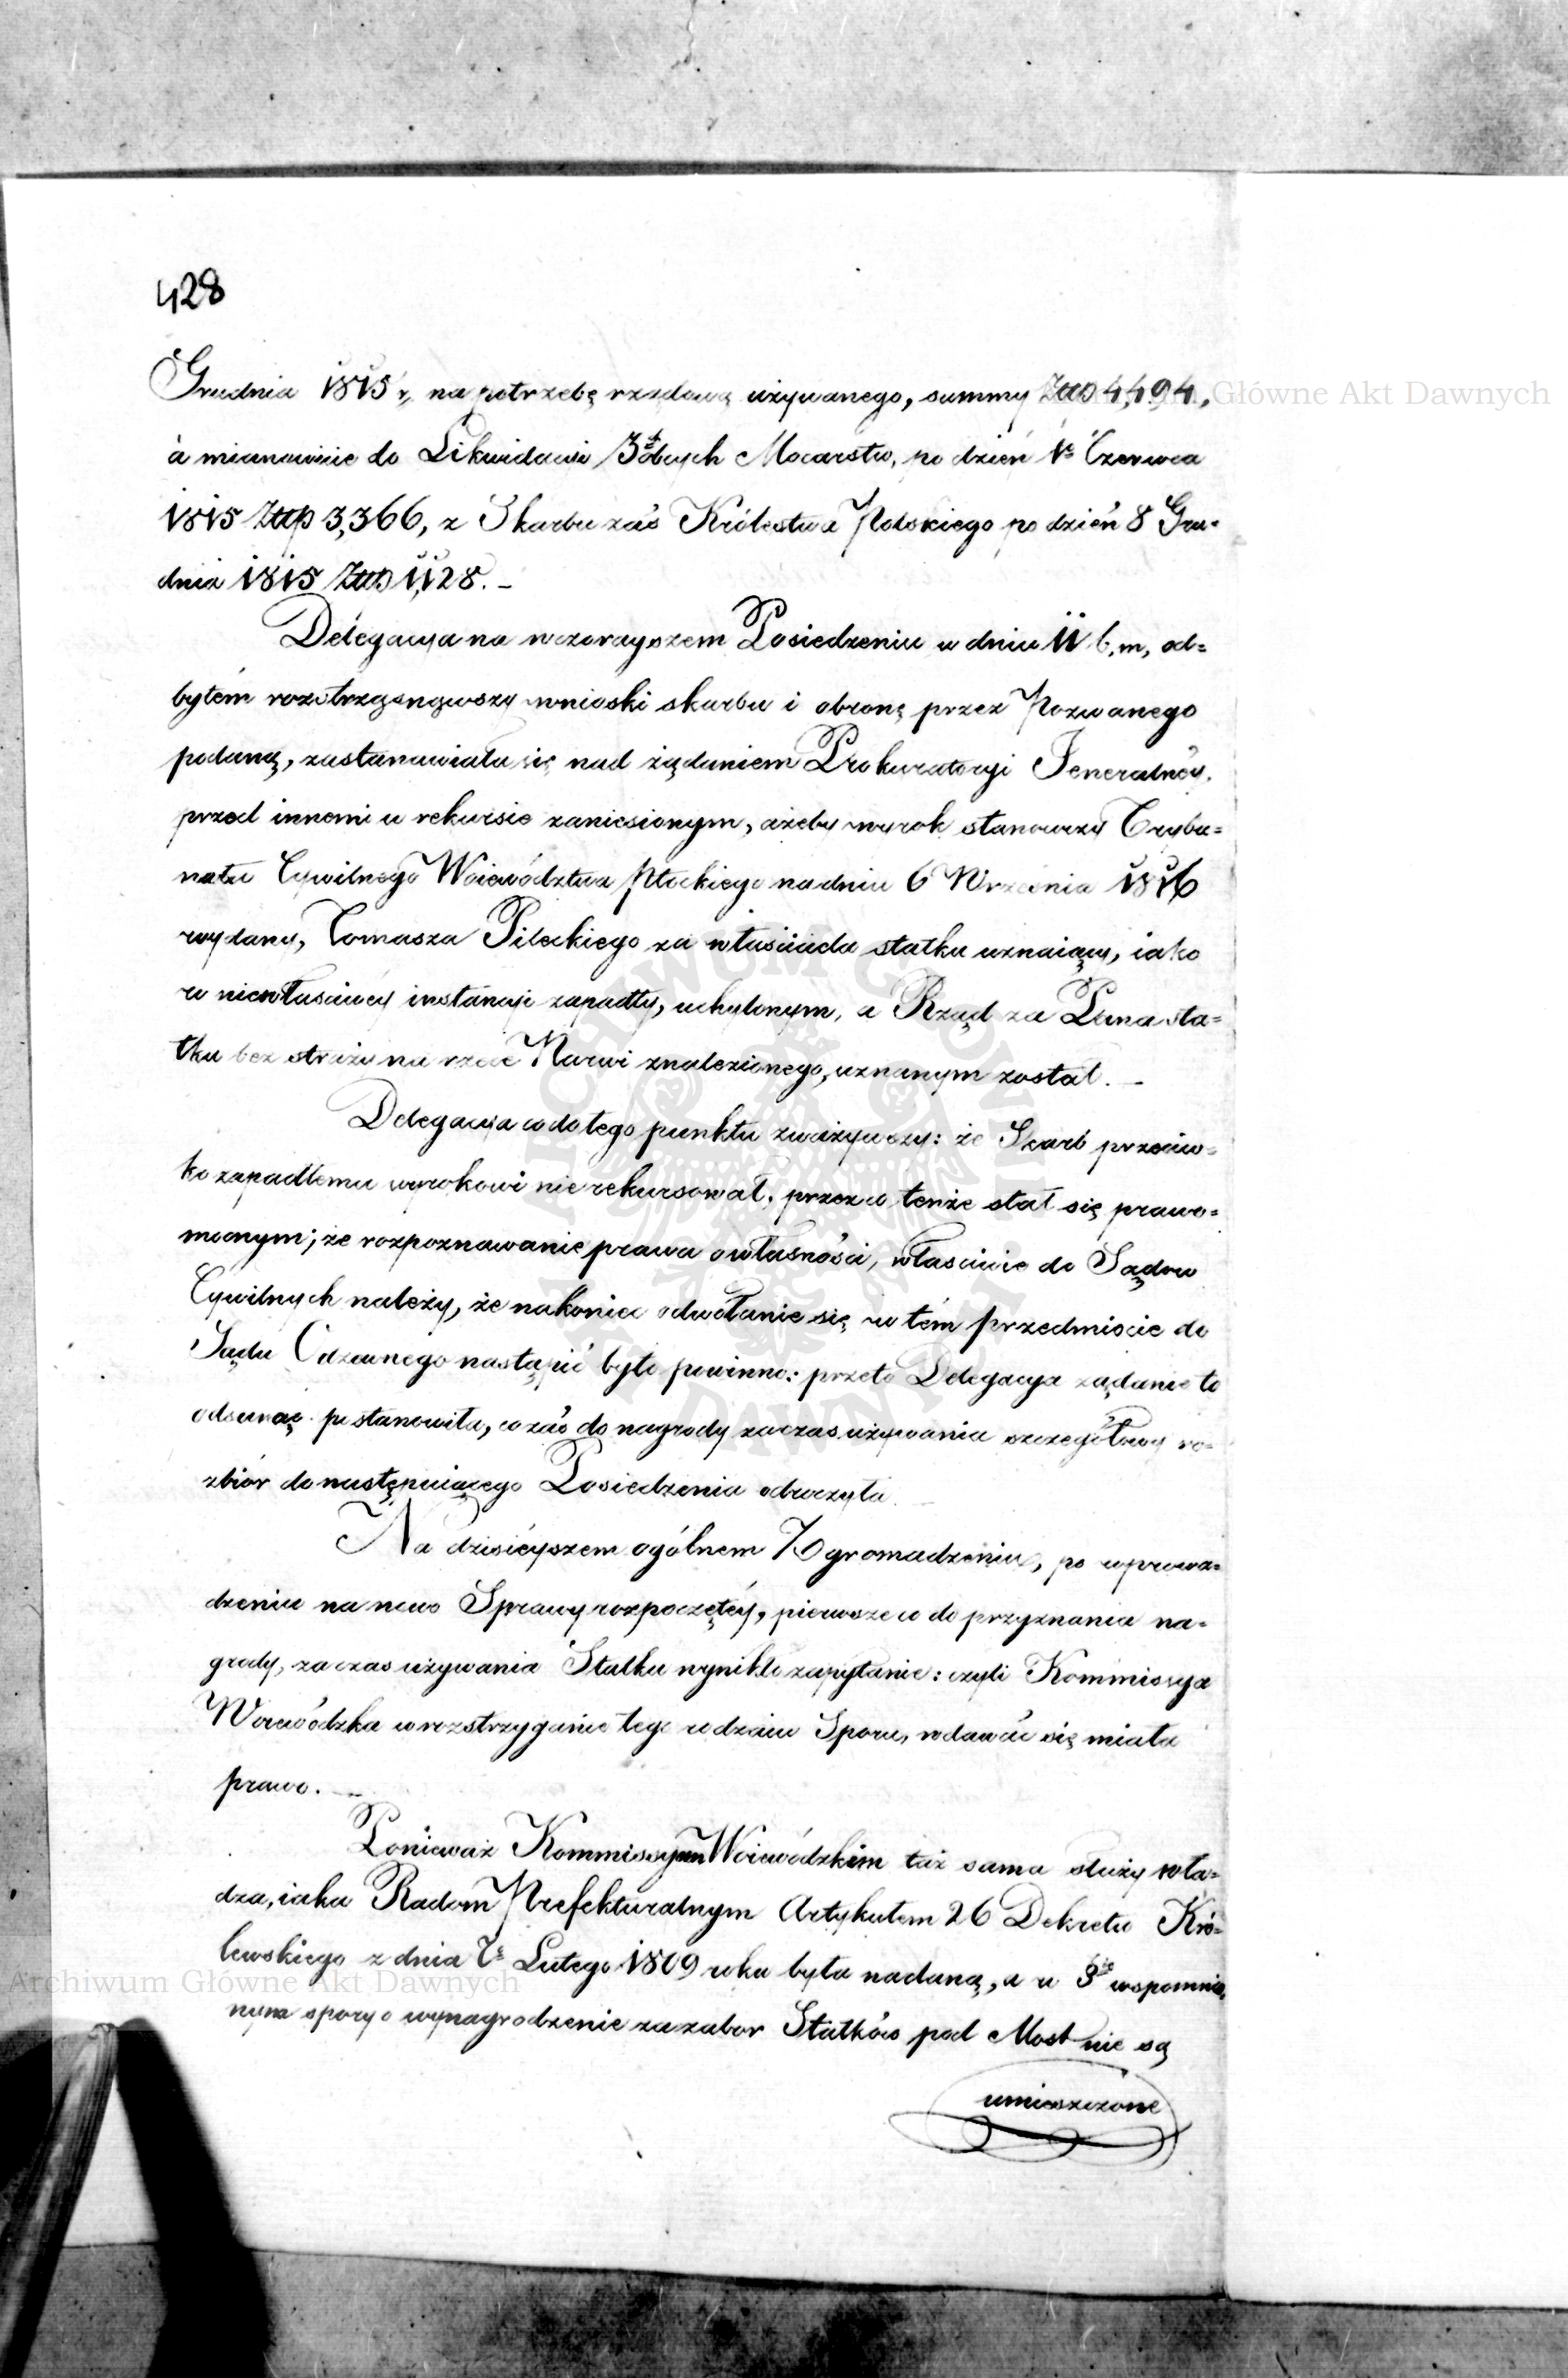 428
Grudnia 1815 r, na potrzebę rządową używanego, summy Złp 4,494,
a mianowicie do Likwidacyi 3ch obcych Mocarstw, po dzień 1o Czerwca
1815 Złp 3,366, z Skarbu zaś Królestwa Polskiego po dzień 8 Gru=
dnia 1815 Złp 1,128. –
Delegacya na wczorayszem Posiedzeniu w dniu 11 b, m, od=
bytém roztrząsnąwszy wnioski skarbu i obronę przez Pozwanego
podaną, zastanawiała się nad żądaniem Prokuratoryi Jeneralnéy,
przed innemi w rekursie zaniesionym, ażeby wyrok stanowczy Trybu=
nału Cywilnego Woiewództwa Płockiego na dniu 6 Września 1816
wydany, Tomasza Pileckiego za właściciela statku uznaiący, iako
w niewłaściwéy instancyi zapadły, uchylonym, a Rząd za Pana sta=
tku bez straży na rzece Narwi znalezionego, uznanym został. –
Delegacya co do tego punktu zważywszy: że Skarb przeciw=
ko zapadłemu wyrokowi nie rekursował, przez co tenże stał się prawo=
mocnym; że rozpoznawanie prawa o własności, właściwie do Sądów
Cywilnych należy, że nakoniec odwołanie się w tém przedmiocie do
Sądu Odzewnego nastąpić było powinno: przeto Delegacya żądanie to
odsunąć postanowiła, co zaś do nagrody za czas używania szczegółowy ro=
zbiór do następuiącego Posiedzenia odroczyła.
Na dzisiéyszem ogólnem Zgromadzeniu, po wprowa=
dzeniu na nowo Sprawy rozpoczętéy, pierwsze co do przyznania na=
grody, za czas używania Statku wynikło zapytanie: czyli Kommissya
Woiewódzka w rozstrzyganie tego rodzaiu Sporu, wdawać się miała
prawo. –
Ponieważ Kommissyom Woiewódzkim taż sama służy wła=
dza, iaka Radom Prefekturalnym Artykułem 26 Dekretu Kró=
lewskiego z dnia 7o Lutego 1809 roku była nadaną, a w §ie wspomnio=
nym spory o wynagrodzenie za zabor Statków pod Most nie są
umieszczone
Archiwum Główne Akt Dawnych
Główne Akt Dawnych